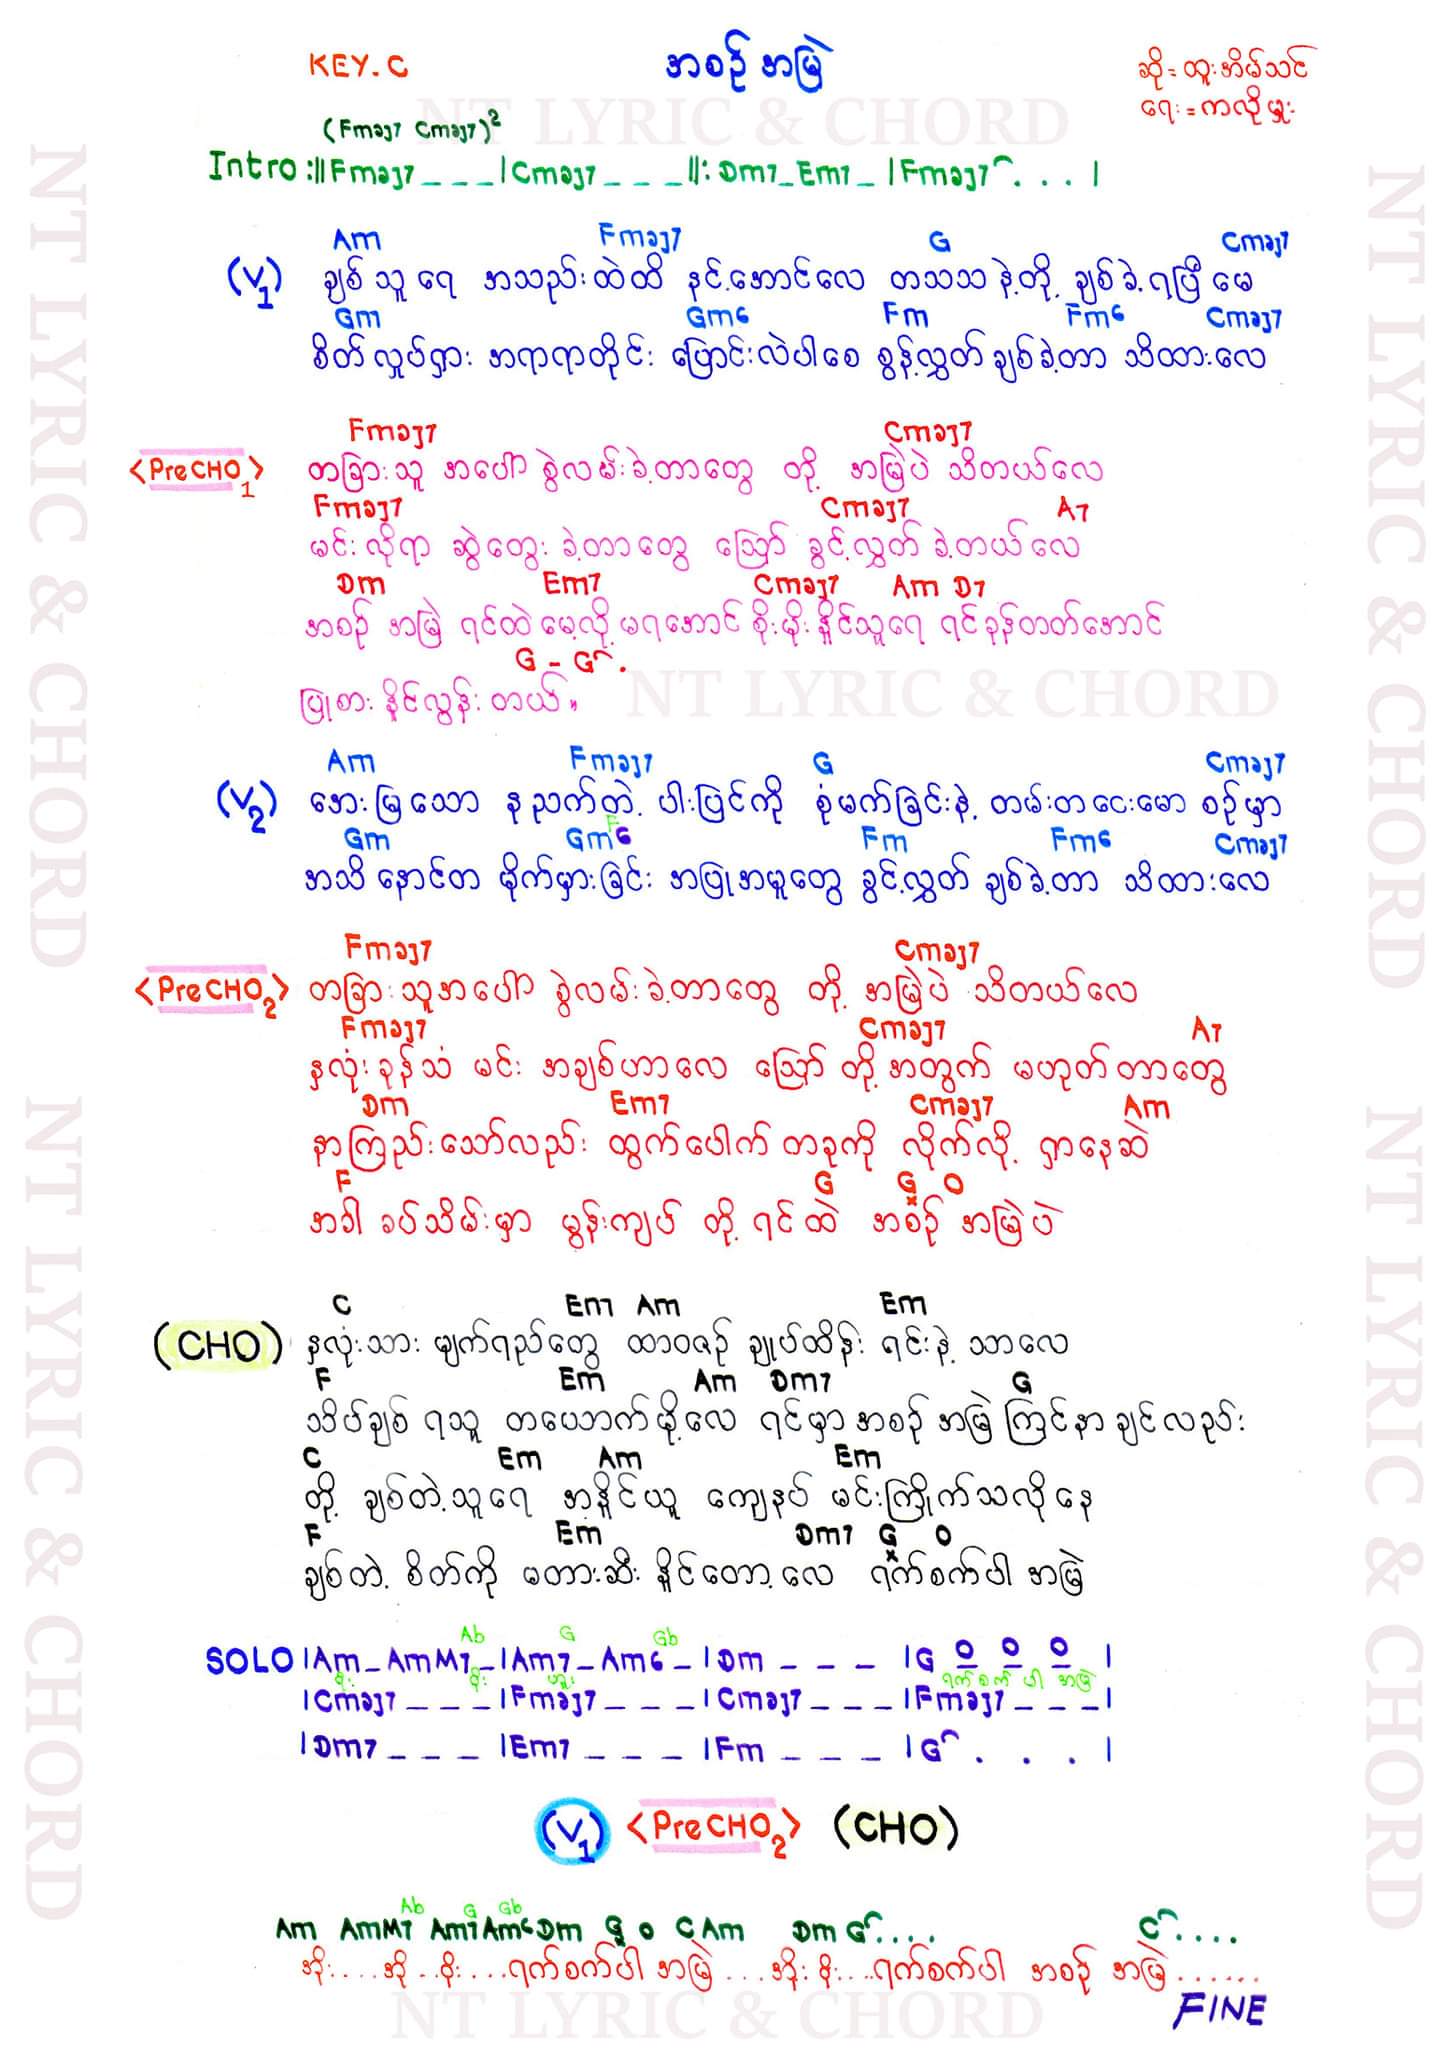 KEY.C
အစဉ် အမြဲ
ဆို = ထူးအိမ်သင်
ရေး = ကလိုမှူး
NT LYRIC & CHORD
(Fmaj7 Cmaj7)²
Intro :||Fmaj7 _ _ _ |Cmaj7 _ _ _ ||: Dm7 _ Em7 _ |Fmaj7 . . . |
Am Fmaj7 G Cmaj7
(V1) ချစ်သူရေ အသည်းထဲထိ နင့်အောင်လေ တသသနဲ့တို့ ချစ်ခဲ့ရပြီမေ
Gm Gm6 Fm Fm6 Cmaj7
စိတ်လှုပ်ရှား အရာရာတိုင်း ပြောင်းလဲပါစေ စွန့်လွှတ်ချစ်ခဲ့တာ သိထားလေ
Fmaj7 Cmaj7
<PreCHO1> တခြားသူ အပေါ် စွဲလမ်းခဲ့တာတွေ တို့ အမြဲပဲ သိတယ်လေ
Fmaj7 Cmaj7 A7
မင်းလိုရာ ဆွဲတွေးခဲ့တာတွေ သြော် ခွင့်လွှတ်ခဲ့တယ်လေ
Dm Em7 Cmaj7 Am D7
အစဉ် အမြဲ ရင်ထဲမေ့လို့မရအောင် စိုးမိုးနိုင်သူရေ ရင်ခုန်တတ်အောင်
G - G .
ပြုစား နိုင်လွန်းတယ်။
NT LYRIC & CHORD
Am Fmaj7 G Cmaj7
(V2) အေးမြသော နုညက်တဲ့ ပါးပြင်ကို စုံမက်ခြင်းနဲ့ တမ်းတငေးမော စဉ်မှာ
Gm Gm6 Fm Fm6 Cmaj7
အသိနောင်တ မိုက်မှားခြင်း အပြုအမူတွေ ခွင့်လွှတ်ချစ်ခဲ့တာ သိထားလေ
Fmaj7 Cmaj7
<PreCHO2> တခြားသူအပေါ် စွဲလမ်းခဲ့တာတွေ တို့ အမြဲပဲ သိတယ်လေ
Fmaj7 Cmaj7 A7
နှလုံးခုန်သံ မင်း အချစ်ဟာလေ သြော် တို့အတွက် မဟုတ်တာတွေ
Dm Em7 Cmaj7 Am
နာကြည်းသော်လည်း ထွက်ပေါက်တခုကို လိုက်လို့ ရှာနေဆဲ
F G G O
အခါခပ်သိမ်းမှာ မွန်းကျပ် တို့ရင်ထဲ အစဉ် အမြဲပဲ
C Em7 Am Em
(CHO) နှလုံးသား မျက်ရည်တွေ ထာဝစဉ် ချုပ်ထိန်း ရင်းနဲ့ သာလေ
F Em Am Dm7 G
သိပ်ချစ် ရသူ တယောက်မို့လေ ရင်မှာအစဉ်အမြဲ ကြင်နာချင်လည်း
C Em Am Em
တို့ ချစ်တဲ့သူရေ အနိုင်ယူ ကျေနပ် မင်းကြိုက်သလိုနေ
F Em Dm7 G O
ချစ်တဲ့ စိတ်ကို မတားဆီးနိုင်တော့လေ ရက်စက်ပါ အမြဲ
Ab G Gb
SOLO |Am _ AmM7 _ |Am7 _ Am6 _ |Dm _ _ _ |G O O O |
ရက်စက်ပါ အမြဲ
|Cmaj7 _ _ _ |Fmaj7 _ _ _ |Cmaj7 _ _ _ |Fmaj7 _ _ _ |
|Dm7 _ _ _ |Em7 _ _ _ |Fm _ _ _ |G . . . |
(V1) <PreCHO2> (CHO)
Ab G Gb
Am AmM7 Am7 Am6 Dm G O C Am Dm G.... C....
အိုး....အို...စိုး....ရက်စက်ပါ အမြဲ....အိုး စိုး...ရက်စက်ပါ အစဉ် အမြဲ......
FINE
NT LYRIC & CHORD
NT LYRIC & CHORD
NT LYRIC & CHORD
NT LYRIC & CHORD
NT LYRIC & CHORD